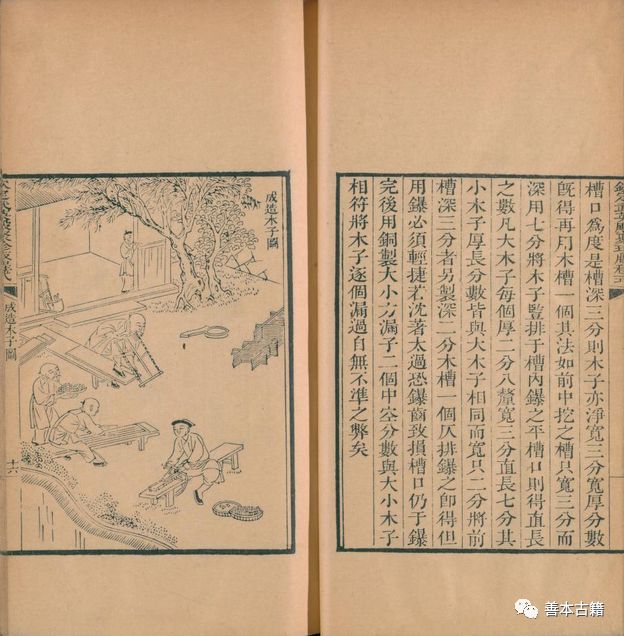 槽口爲度是槽深三分則木子亦淨寬三分寬厚分數
旣得再用木槽一個其法如前中挖之槽只寬三分而
深用七分將木子豎排于槽內鑤之平槽口則得直長
之數凡大木子每個厚二分八釐寬三分直長七分其
小木子厚長分數皆與大木子相同而寬只二分將前
槽深三分者另製深二分木槽一個仄排鑤之卽得但
用鑤必須輕捷若沈著太過恐鑤齒致損槽口仍于鑤
完後用銅製大小方漏子二個中空分數與大小木子
相符將木子逐個漏過自無不準之弊矣
成造木子圖
成造木子圖
善本古籍